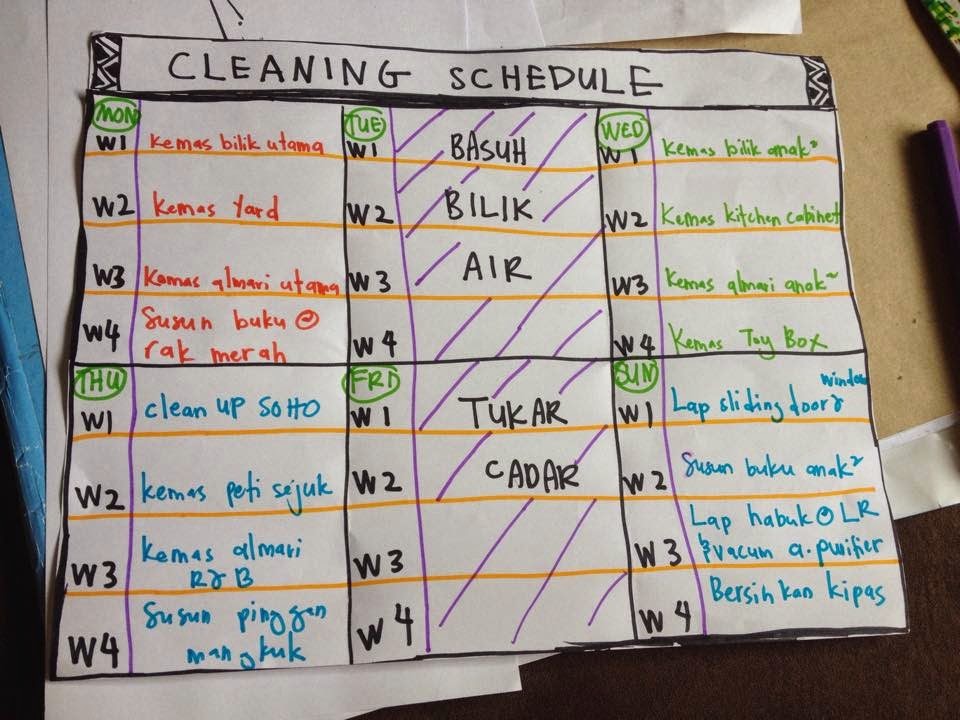 CLEANING SCHEDULE
MON
W1 Kemas bilik utama
W2 Kemas Yard
W3 Kemas almari utama
W4 Susun buku @
rak merah
TUE
W1 BASUH
W2 BILIK
W3 AIR
W4
WED
W1 Kemas bilik anak²
W2 Kemas kitchen cabinet
W3 Kemas almari anak~
W4 Kemas Toy Box
THU
W1 clean up SOHO
W2 kemas peti sejuk
W3 kemas almari
R&B
W4 Susun pinggan
mangkuk
FRI
W1 TUKAR
W2 CADAR
W3
W4
SUN
window
W1 Lap sliding door &
W2 Susun buku anak²
Lap habuk @ LR
W3 & vacum a.purifier
W4 Bersihkan kipas